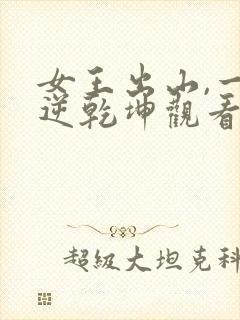 女王出山,一
逆乾坤觀看
超級大坦克科